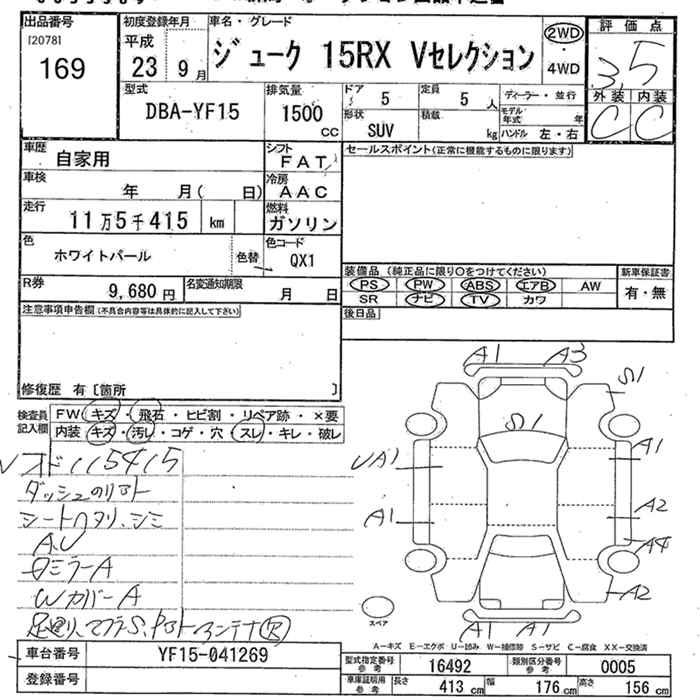 出品番号
[2078]
169
初度登録年月
平成
23 9月
車名・グレード
ジューク 15RX Vセレクション
2WD
4WD
評価点
3.5
外装 内装
C C
型式
DBA-YF15
排気量
1500 CC
ドア 5
定員 5 人
ディーラー・並行
形状 SUV
積載 kg
モデル年式 年
ハンドル 左・右
車歴 自家用
シフト FAT
セールスポイント(正常に機能するものに限ります)
車検 年 月( 日)
冷房 AAC
走行 11万5千415 km
燃料 ガソリン
色 ホワイトパール 色替
色コード QX1
装備品 (純正品に限り〇をつけてください) 新車保証書
PS PW ABS エアB AW 有・無
SR ナビ TV カワ
R券 9,680 円
名変通知期限 月 日
後日品
注意事項申告欄(不具合内容等は具体的に記入して下さい)
修復歴 有〔箇所 〕
検査員記入欄
FW キズ・飛石・ヒビ割・リペア跡・×要
内装 キズ・汚レ・コゲ・穴・スレ・キレ・破レ
115415
ダッシュのリフト
シートヘタリ、シミ
A、U
ミラーA
Wカバー A
A1 A3
S1
S1
UA1 A1
A1 A2
A4
A2
A1 A1
スペア
A-キズ E-エクボ U-凹み W-補修跡 S-サビ C-腐食 XX-交換済
車台番号 YF15-041269
登録番号
型式指定番号 参考 16492
類別区分番号 参考 0005
車庫証明用 参考 長さ 413 cm 幅 176 cm 高さ 156 cm